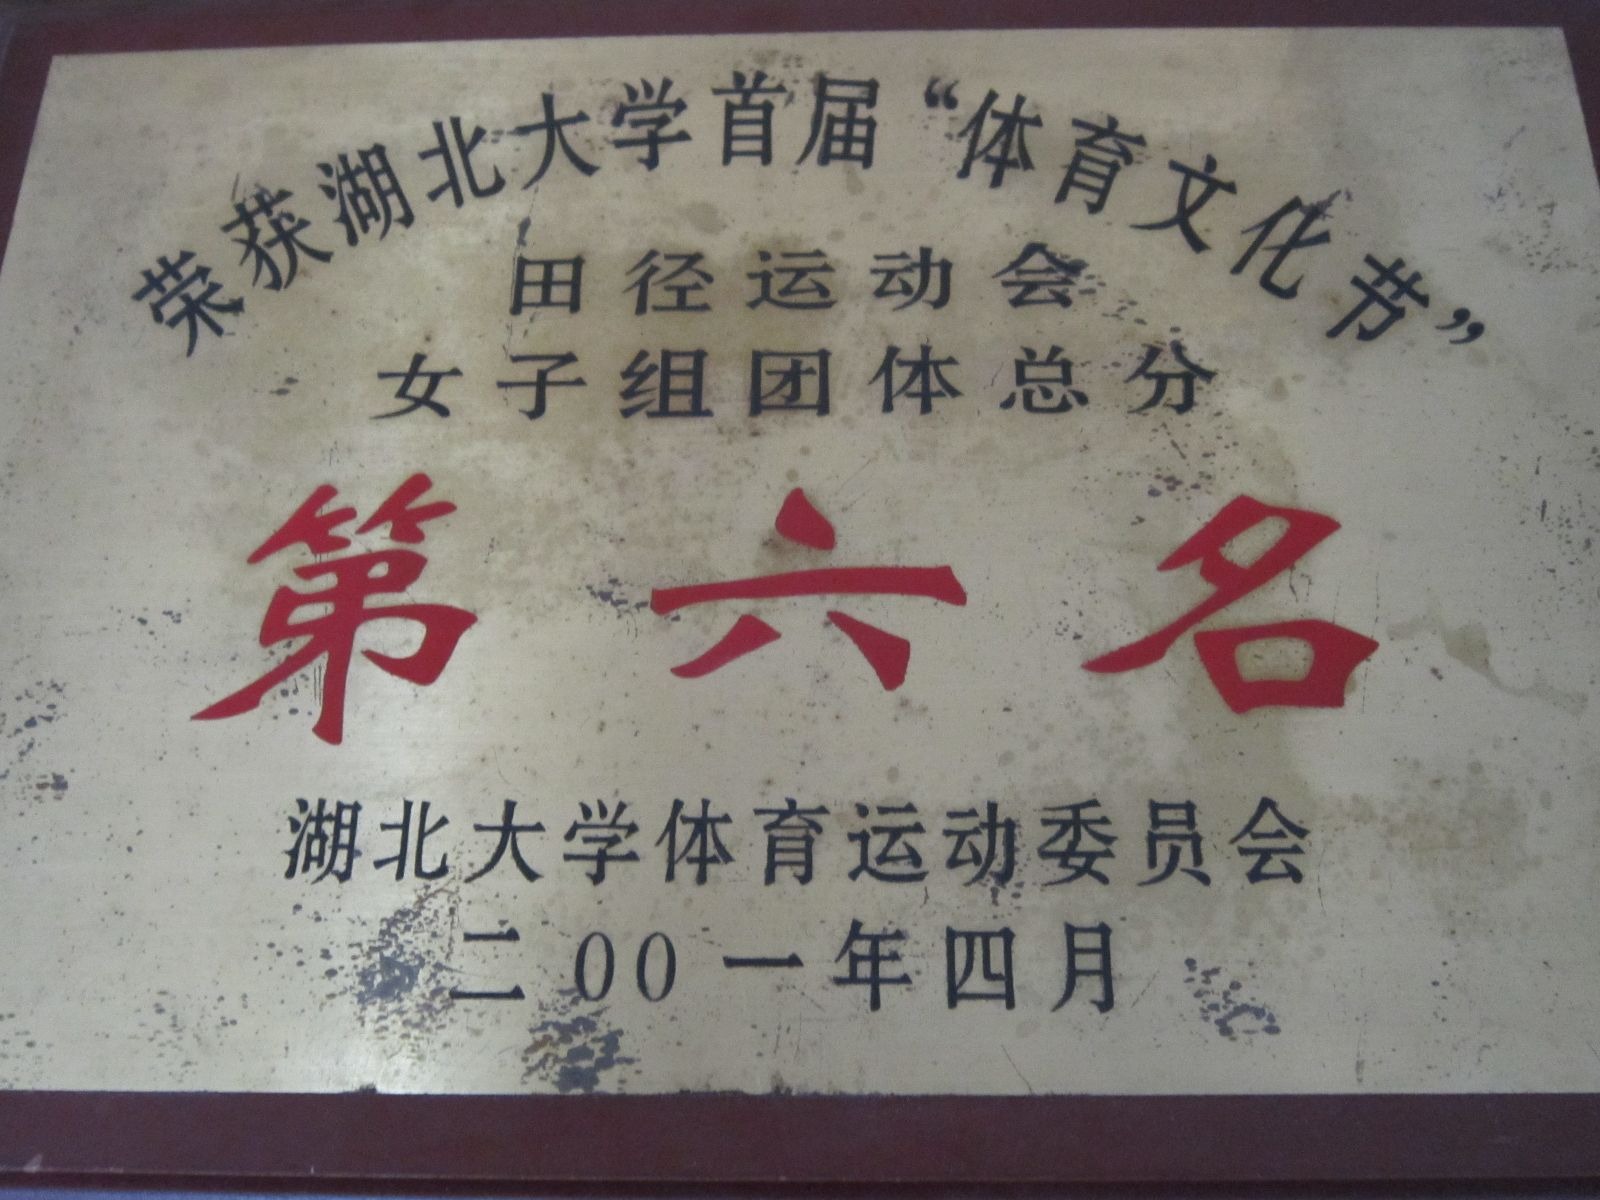 荣获湖北大学首届“体育文化节”
田径运动会
女子组团体总分
第六名
湖北大学体育运动委员会
二00一年四月